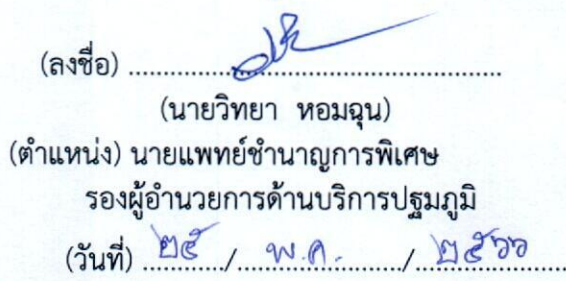 (ลงชื่อ) ................................................
(นายวิทยา หอมฉุน)
(ตำแหน่ง) นายแพทย์ชำนาญการพิเศษ
รองผู้อำนวยการด้านบริการปฐมภูมิ
(วันที่) ๒๕ / พ.ค. / ๒๕๖๖